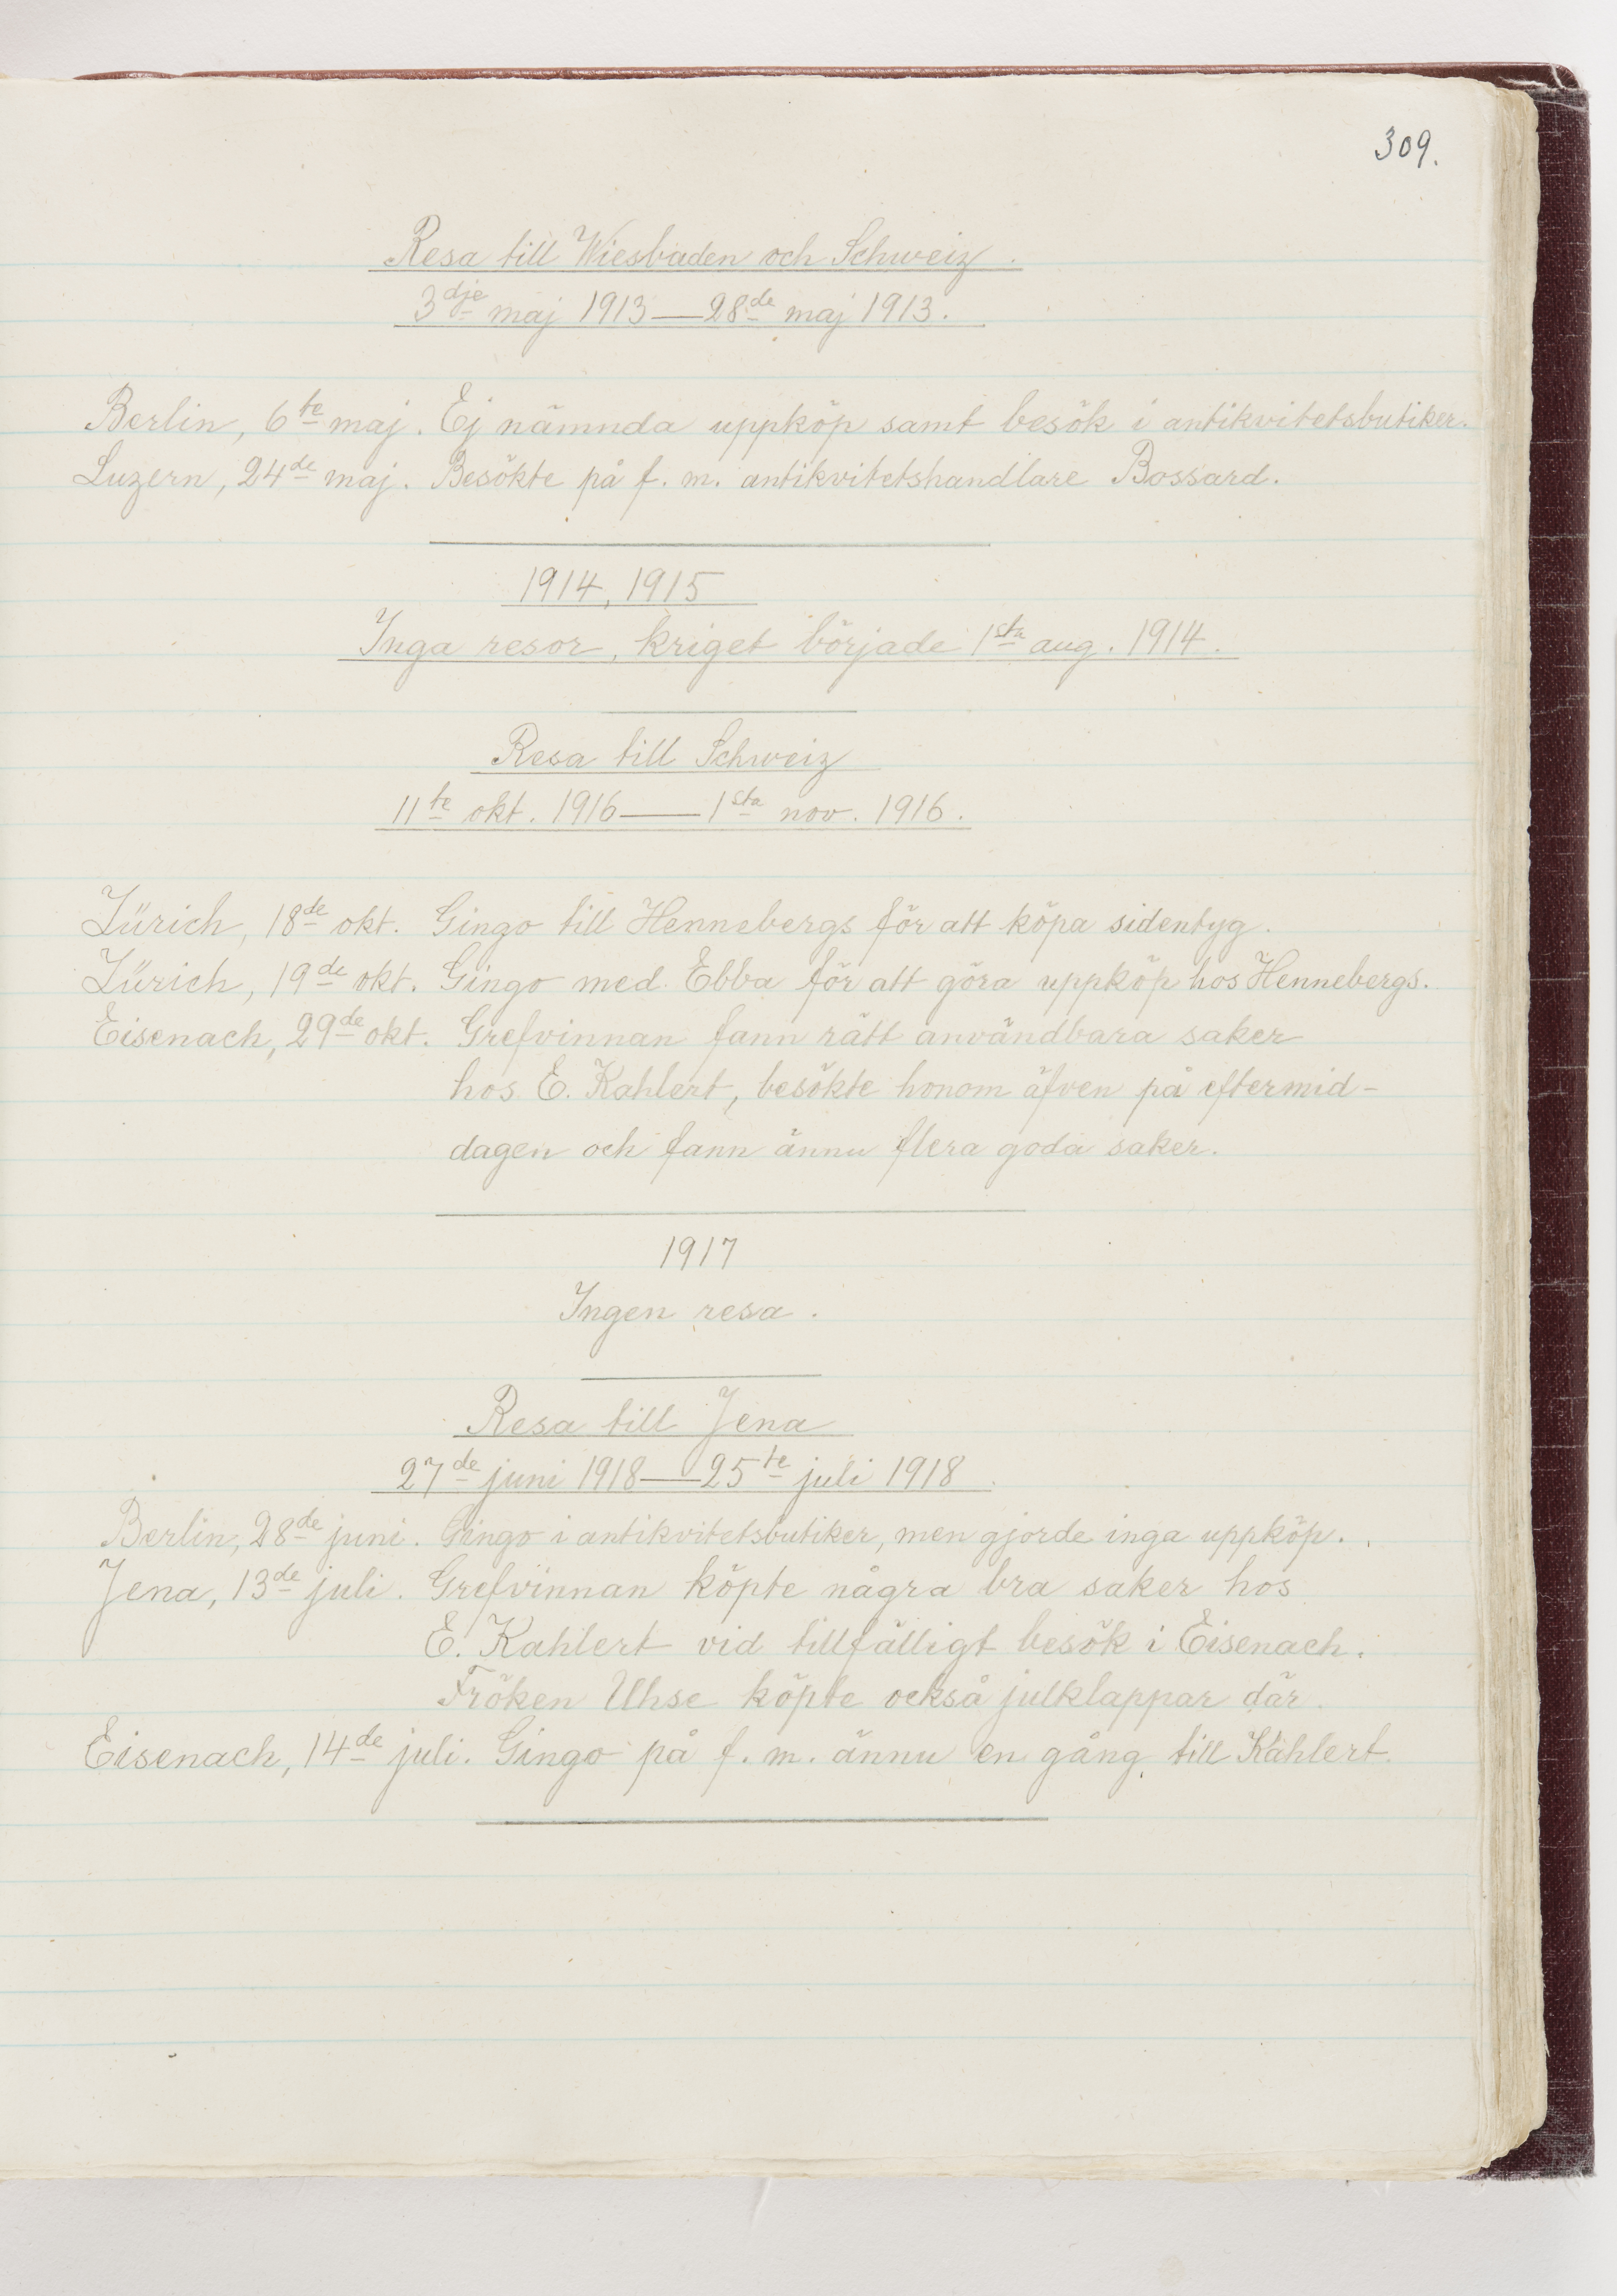 309.
Resa till Wiesbaden och Schweiz.
3dje maj 1913—28de maj 1913.
Berlin, 6te maj. Ej nämnda uppköp samt besök i antikvitetsbutiker.
Luzern, 24de maj. Besökte på f. m. antikvitetshandlare Bossard.
1914, 1915
Inga resor, kriget började 1sta aug. 1914.
Resa till Schweiz
11te okt. 1916—1sta nov. 1916.
Zürich, 18de okt. Gingo till Hennebergs för att köpa sidentyg.
Zürich, 19de okt. Gingo med Ebba för att göra uppköp hos Hennebergs.
Eisenach, 29de okt. Grefvinnan fann rätt användbara saker
hos E. Kahlert, besökte honom äfven på eftermid-
dagen och fann ännu flera goda saker.
1917
Ingen resa.
Resa till Jena
27de juni 1918—25te juli 1918.
Berlin, 28de juni. Gingo i antikvitetsbutiker, men gjorde inga uppköp.
Jena, 13de juli. Grefvinnan köpte några bra saker hos
E. Kahlert vid tillfälligt besök i Eisenach.
Fröken Uhse köpte också julklappar där.
Eisenach, 14de juli. Gingo på f. m. ännu en gång till Kahlert.